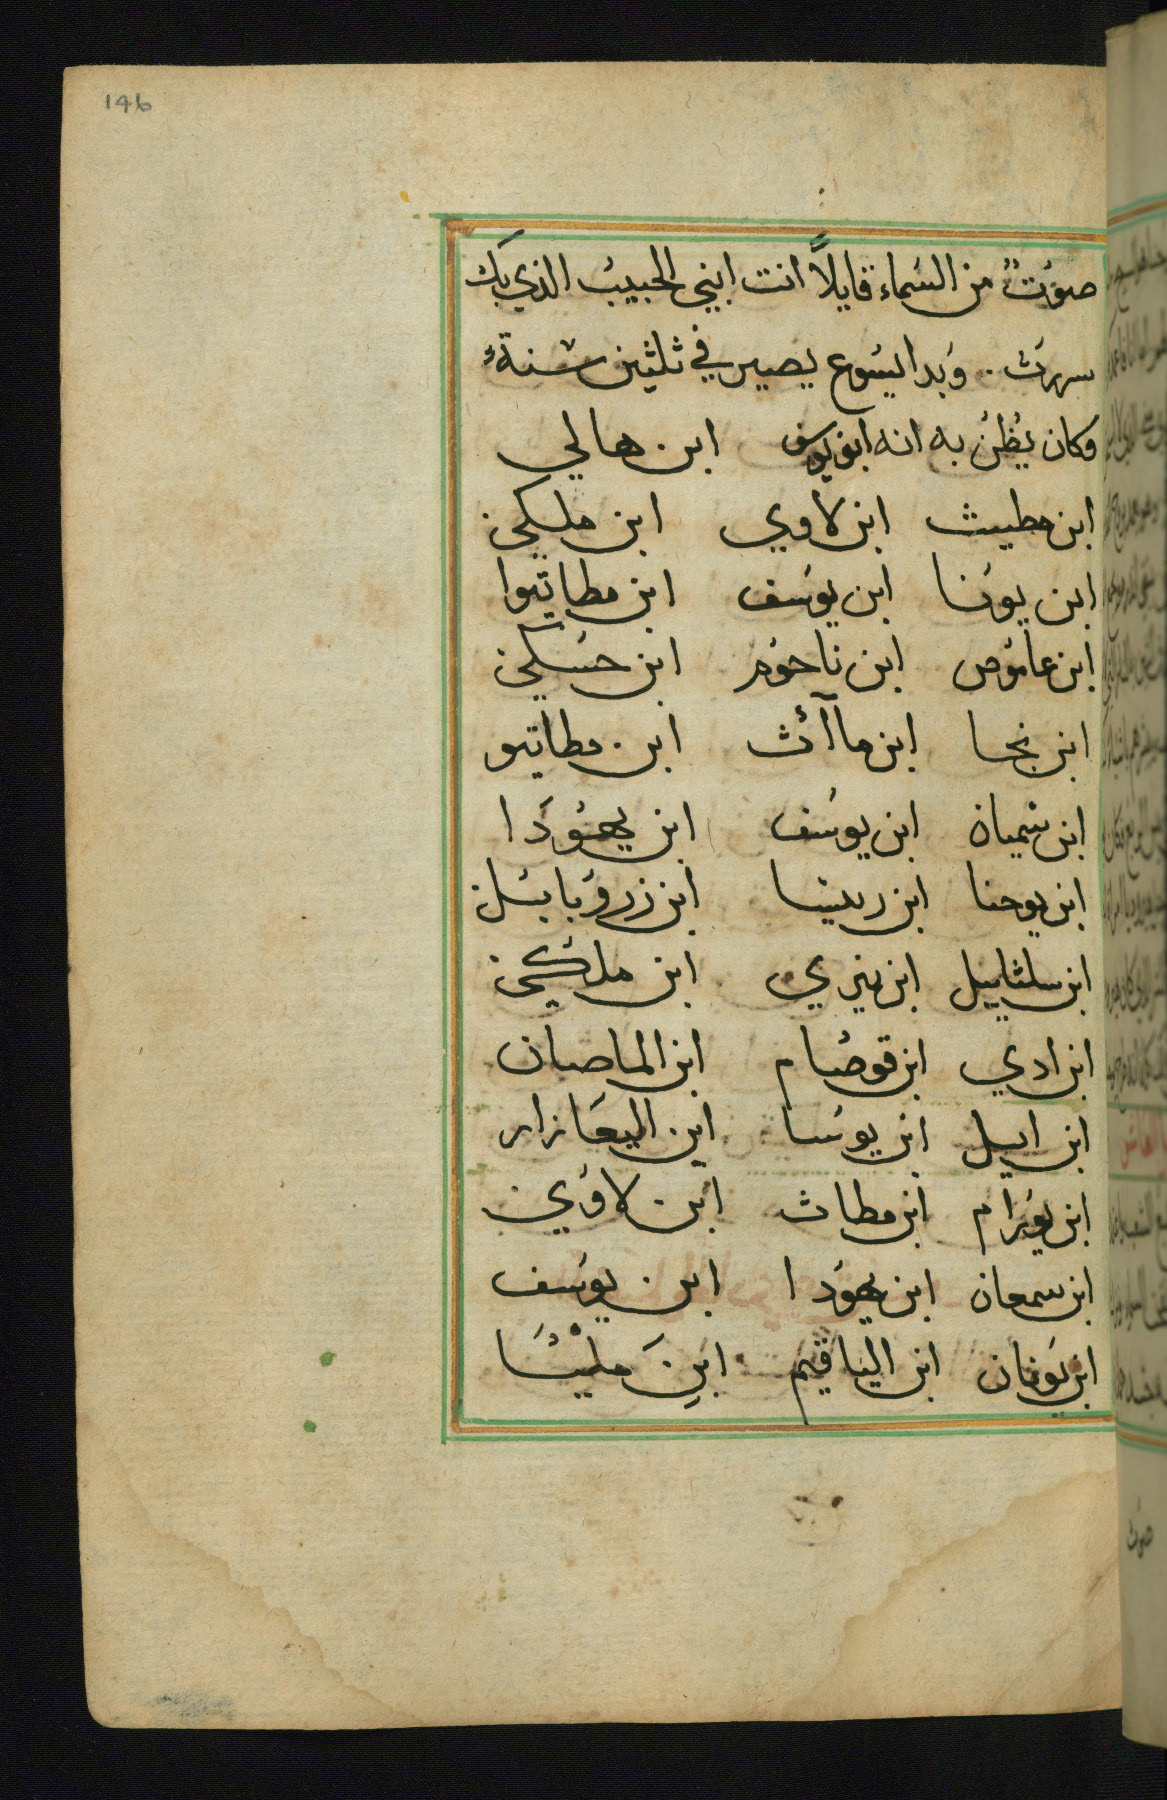 146
صوت من السماء قايلاً انت ابني الحبيب الذي بك
سررت . وبدا يسوع يصير في ثلثين سنة
وكان يُظن به انه ابن يوسف ابن هالي
ابن مطيث ابن لاوي ابن ملكي
ابن يونا ابن يوسف ابن مطاتيوا
ابن عاموص ابن ناحوم ابن حسكي
ابن نجا ابن ماآث ابن مطاتيو
ابن شميان ابن يوسف ابن يهودا
ابن يوحنا ابن ريسا ابن زروبابل
ابن سلثاييل ابن نيري ابن ملكي
ابن ادي ابن قوصام ابن الماصان
ابن ايل ابن يوسا ابن اليعازار
ابن يورام ابن مطاث ابن لاوي
ابن سمعان ابن يهودا ابن يوسف
ابن يونان ابن الياقيم ابن مليا
صوت